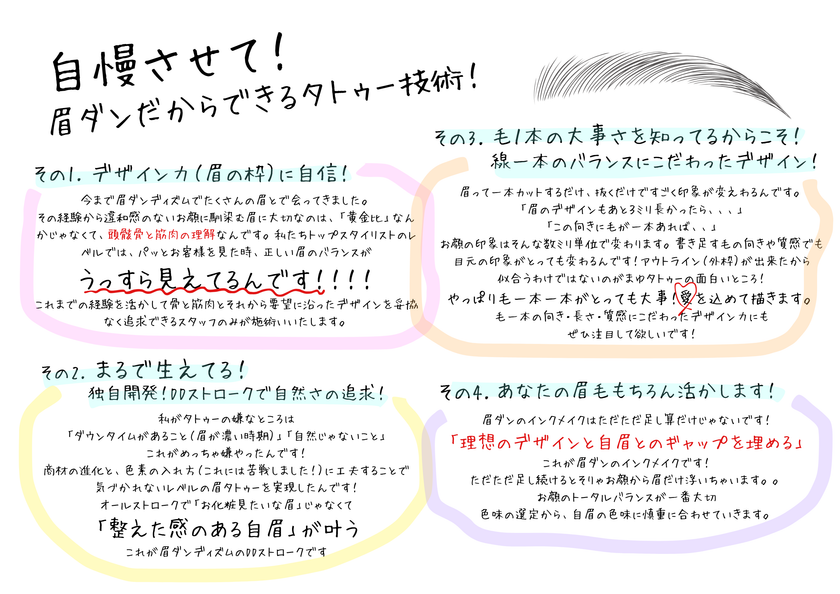 自慢させて！
眉ダンだからできるタトゥー技術！
その1. デザイン力(眉の枠)に自信！
今まで眉ダンディズムでたくさんの眉とで会ってきました。
その経験から違和感のないお顔に馴染む眉に大切なのは、「黄金比」なん
かじゃなくて、頭蓋骨と筋肉の理解なんです。私たちトップスタイリストのレ
ベルでは、パッとお客様を見た時、正しい眉のバランスが
うっすら見えてるんです！！！！
これまでの経験を活かして骨と筋肉とそれから要望に沿ったデザインを妥協
なく追求できるスタッフのみが施術いいたします。
その2. まるで生えてる！
独自開発！DDストロークで自然さの追求！
私がタトゥーの嫌なところは
「ダウンタイムがあること(眉が濃い時期)」「自然じゃないこと」
これがめっちゃ嫌やったんです！
商材の進化と、色素の入れ方(これには苦戦しました！)に工夫することで
気づかれないレベルの眉タトゥーを実現したんです！
オールストロークで「お化粧見たいな眉」じゃなくて
「整えた感のある自眉」が叶う
これが眉ダンディズムのDDストロークです
その3. 毛1本の大事さを知ってるからこそ！
線一本のバランスにこだわったデザイン！
眉って一本カットするだけ、抜くだけですごく印象が変えわるんです。
「眉のデザインもあと3ミリ長かったら、、、」
「この向きにもが一本あれば、、」
お顔の印象はそんな数ミリ単位で変わります。書き足すもの向きや質感でも
目元の印象がとっても変わるんです！アウトライン(外枠)が出来たから
似合うわけではないのがまゆタトゥーの面白いところ！
やっぱり毛一本一本がとっても大事！愛を込めて描きます。
毛一本の向き・長さ・質感にこだわったデザイン力にも
ぜひ注目して欲しいです！
その4. あなたの眉毛ももちろん活かします！
眉ダンのインクメイクはただただ足し算だけじゃないです！
「理想のデザインと自眉とのギャップを埋める」
これが眉ダンのインクメイクです！
ただただ足し続けるとそりゃお顔から眉だけ浮いちゃいます。。
お顔のトータルバランスが一番大切
色味の選定から、自眉の色味に慎重に合わせていきます。